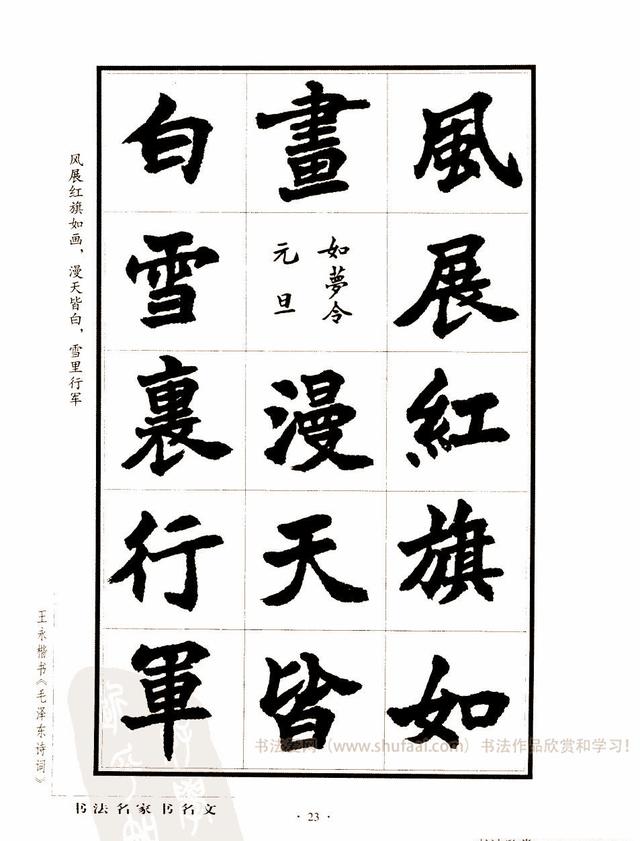 風展紅旗如
畫
如夢令
元旦
漫天皆
白雪裏行軍
风展红旗如画，漫天皆白，雪里行军
王永楷书《毛泽东诗词》
书法名家书名文
·23·
书法爱网（www.shufaai.com）书法作品欣赏和学习！